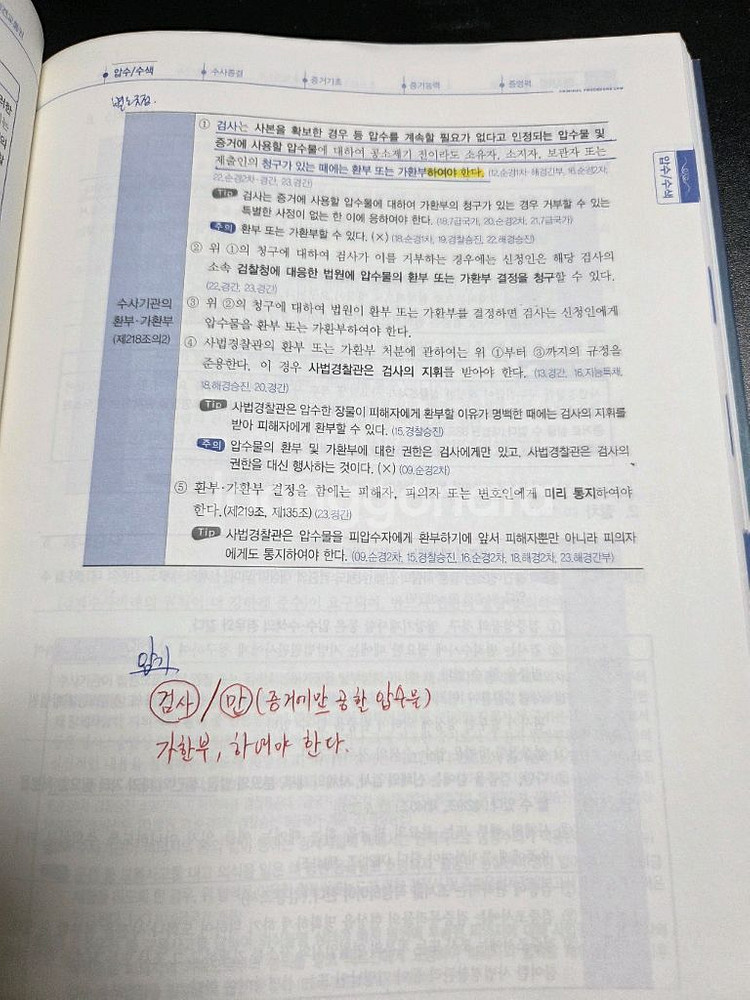 압수/수색 수사종결 증거기초 증거능력 증명력
압수/수색
① 검사는 사본을 확보한 경우 등 압수를 계속할 필요가 없다고 인정되는 압수물 및
증거에 사용할 압수물에 대하여 공소제기 전이라도 소유자, 소지자, 보관자 또는
제출인의 청구가 있는 때에는 환부 또는 가환부하여야 한다. (12.순경1차·해경간부, 16.순경2차,
22.순경2차·경간, 23.경간)
Tip 검사는 증거에 사용할 압수물에 대하여 가환부의 청구가 있는 경우 거부할 수 있는
특별한 사정이 없는 한 이에 응하여야 한다. (18.7급국가, 20.순경2차, 21.7급국가)
주의 환부 또는 가환부할 수 있다. (×) (18.순경1차, 19.경찰승진, 22.해경승진)
② 위 ①의 청구에 대하여 검사가 이를 거부하는 경우에는 신청인은 해당 검사의
소속 검찰청에 대응한 법원에 압수물의 환부 또는 가환부 결정을 청구할 수 있다.
(22.경간, 23.경간)
수사기관의
환부·가환부
(제218조의2)
③ 위 ②의 청구에 대하여 법원이 환부 또는 가환부를 결정하면 검사는 신청인에게
압수물을 환부 또는 가환부하여야 한다.
④ 사법경찰관의 환부 또는 가환부 처분에 관하여는 위 ①부터 ③까지의 규정을
준용한다. 이 경우 사법경찰관은 검사의 지휘를 받아야 한다. (13.경간, 16.지능특채,
18.해경승진, 20.경간)
Tip 사법경찰관은 압수한 장물이 피해자에게 환부할 이유가 명백한 때에는 검사의 지휘를
받아 피해자에게 환부할 수 있다. (15.경찰승진)
주의 압수물의 환부 및 가환부에 대한 권한은 검사에게만 있고, 사법경찰관은 검사의
권한을 대신 행사하는 것이다. (×) (09.순경2차)
⑤ 환부·가환부 결정을 함에는 피해자, 피의자 또는 변호인에게 미리 통지하여야
한다.(제219조, 제135조) (23.경간)
Tip 사법경찰관은 압수물을 피압수자에게 환부하기에 앞서 피해자뿐만 아니라 피의자
에게도 통지하여야 한다. (09.순경2차, 15.경찰승진, 16.순경2차, 18.해경2차, 23.해경간부)
암기
검사 / 만 (증거에만 공할 압수물)
가환부, 하여야 한다.